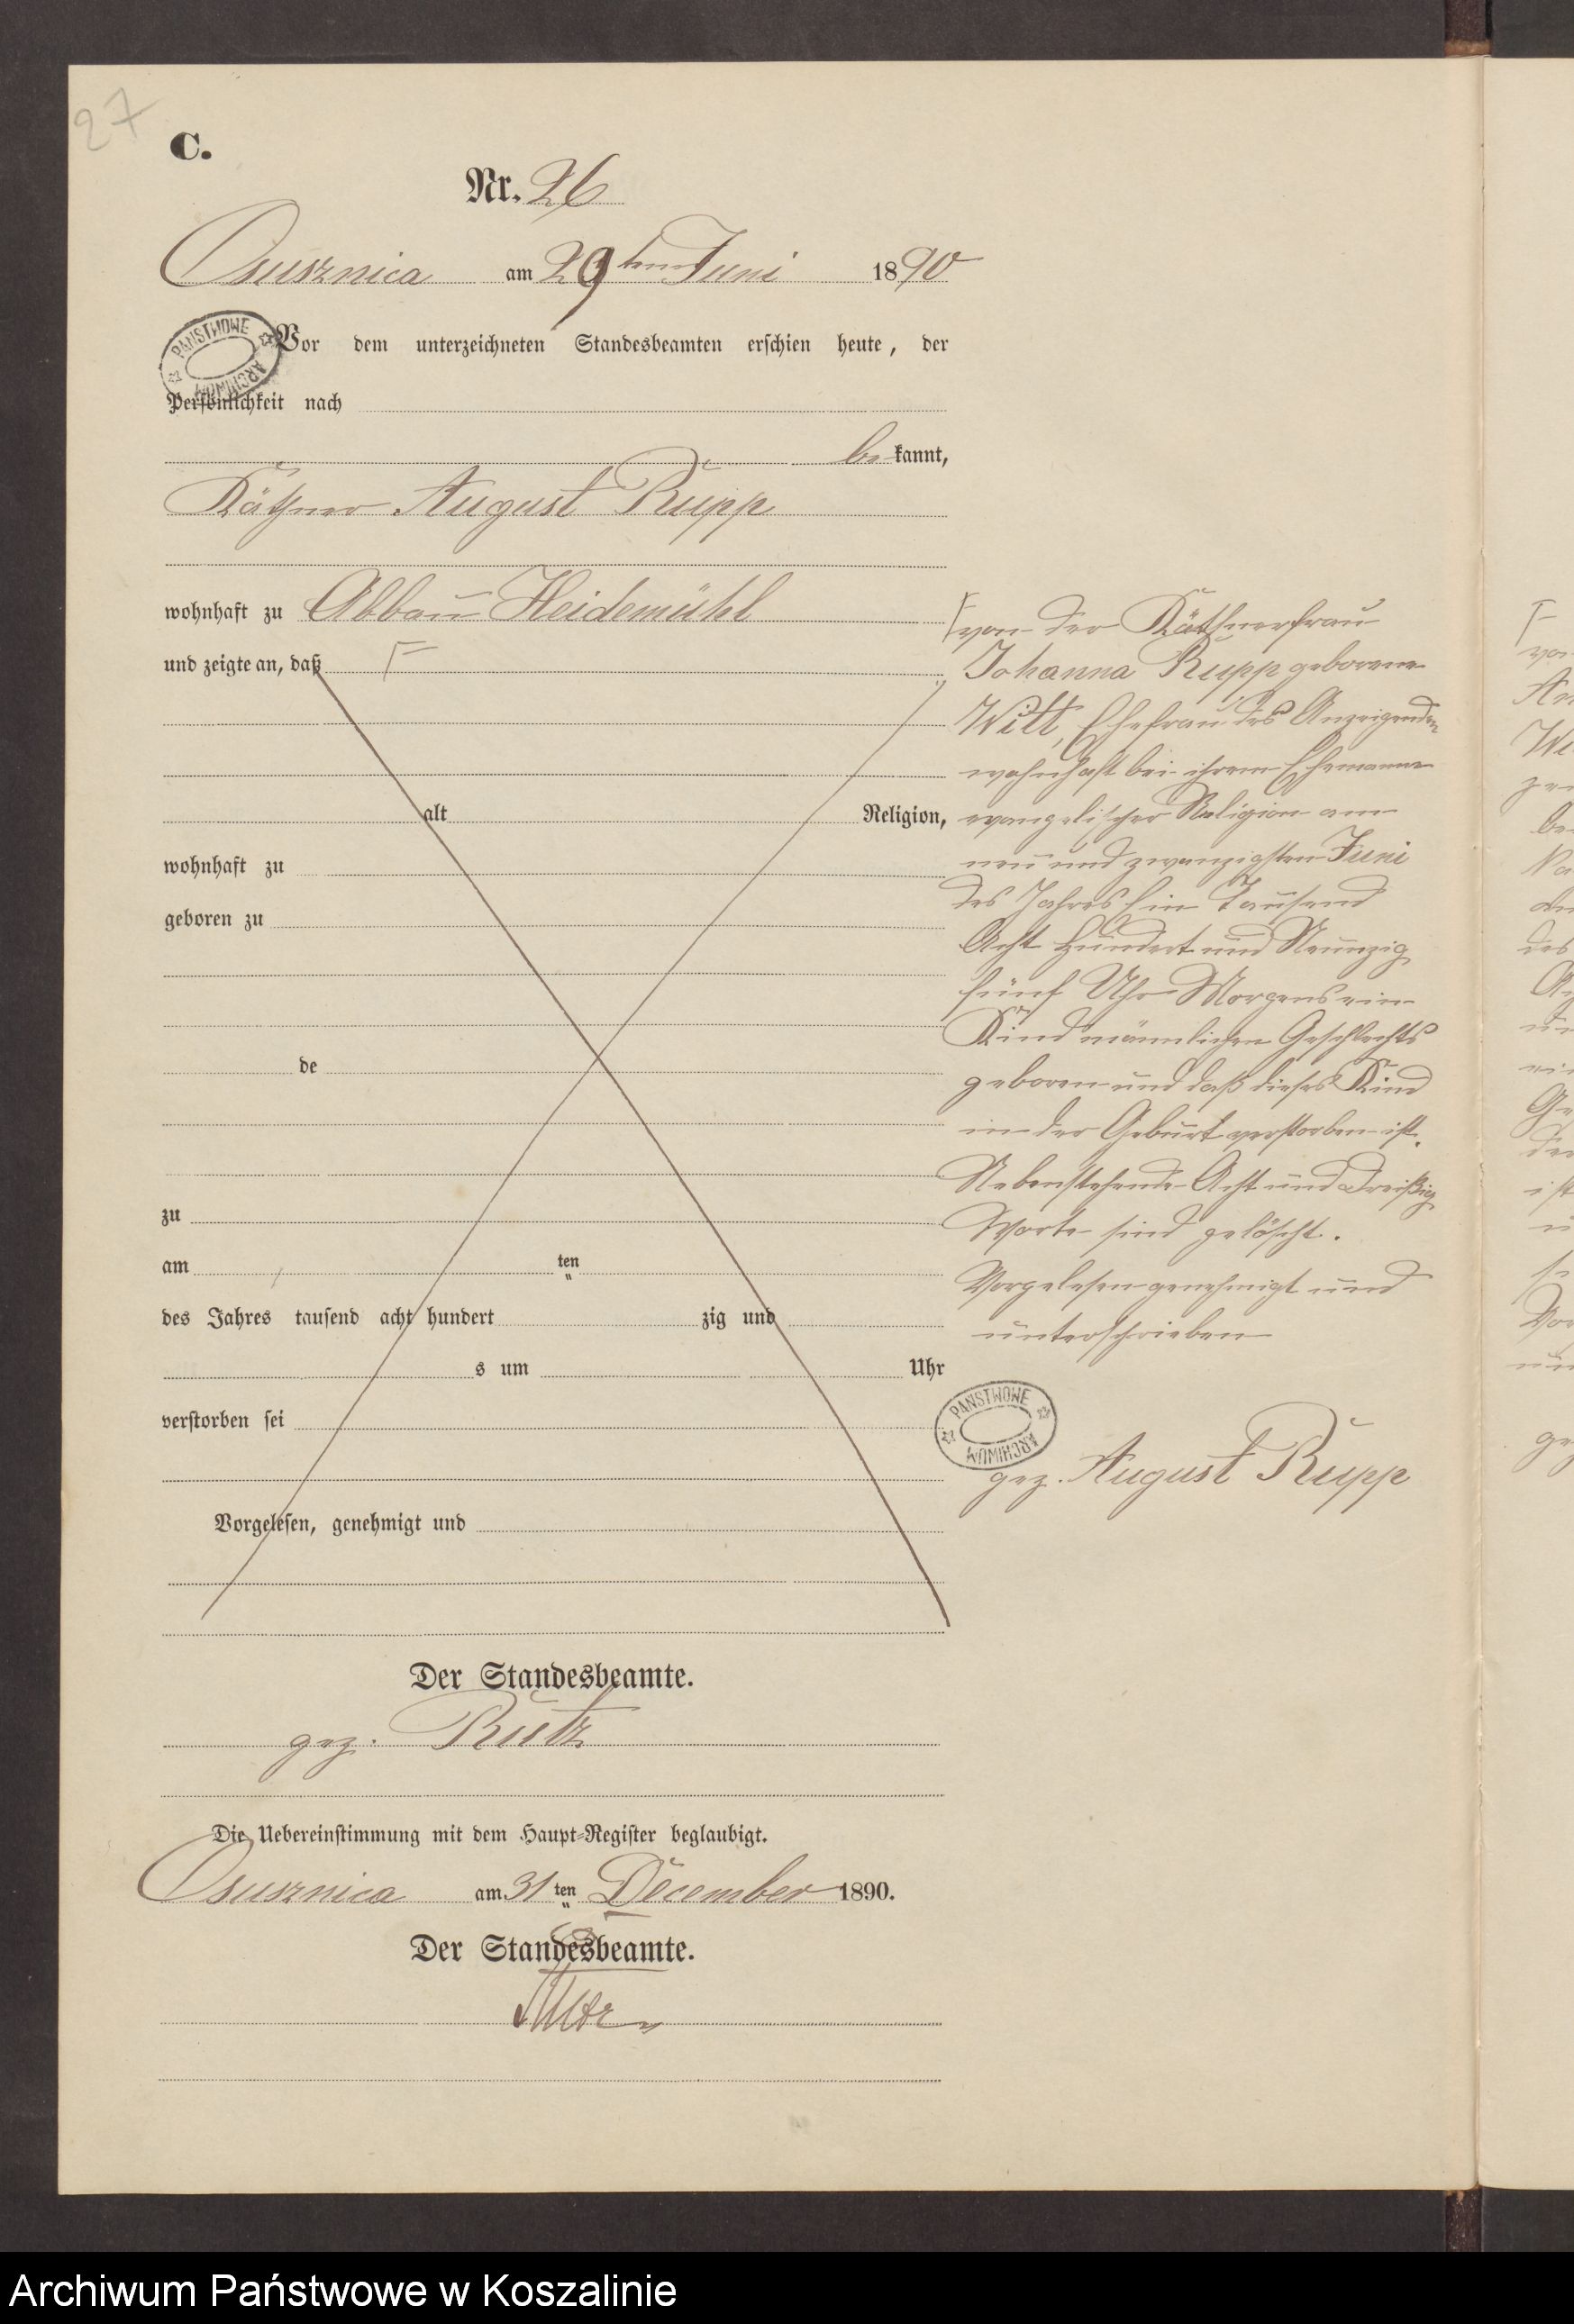 27
C.
Nr. 26
Osusznica am 29ten Juni 1890
PANSTWOWE ARCHIWUM
Vor dem unterzeichneten Standesbeamten erschien heute, der
Persönlichkeit nach
be kannt,
Käthner August Rupp
wohnhaft zu Abbau Heidemühl
und zeigte an, daß
alt Religion,
wohnhaft zu
geboren zu
de
zu
am ten
des Jahres tausend acht hundert zig und
s um Uhr
verstorben sei
Vorgelesen, genehmigt und
von der Käthnerfrau
Johanna Rupp geborene
Witt, Ehefrau des Anzeigenden
wohnhaft bei ihrem Ehemanne
evangelischer Religion am
neun und zwanzigsten Juni
des Jahres Ein Tausend
Acht Hundert und Neunzig
fünf Uhr Morgens ein
Kind männlichen Geschlechts
geboren und daß dieses Kind
in der Geburt verstorben ist.
Nebenstehende Acht und dreißig
Worte sind gelöscht.
Vorgelesen genehmigt und
unterschrieben
PANSTWOWE ARCHIWUM
gez. August Rupp
Der Standesbeamte.
gez. Rutz
Die Uebereinstimmung mit dem Haupt-Register beglaubigt.
Osusznica am 31ten December 1890.
Der Standesbeamte.
Rutz
Archiwum Państwowe w Koszalinie